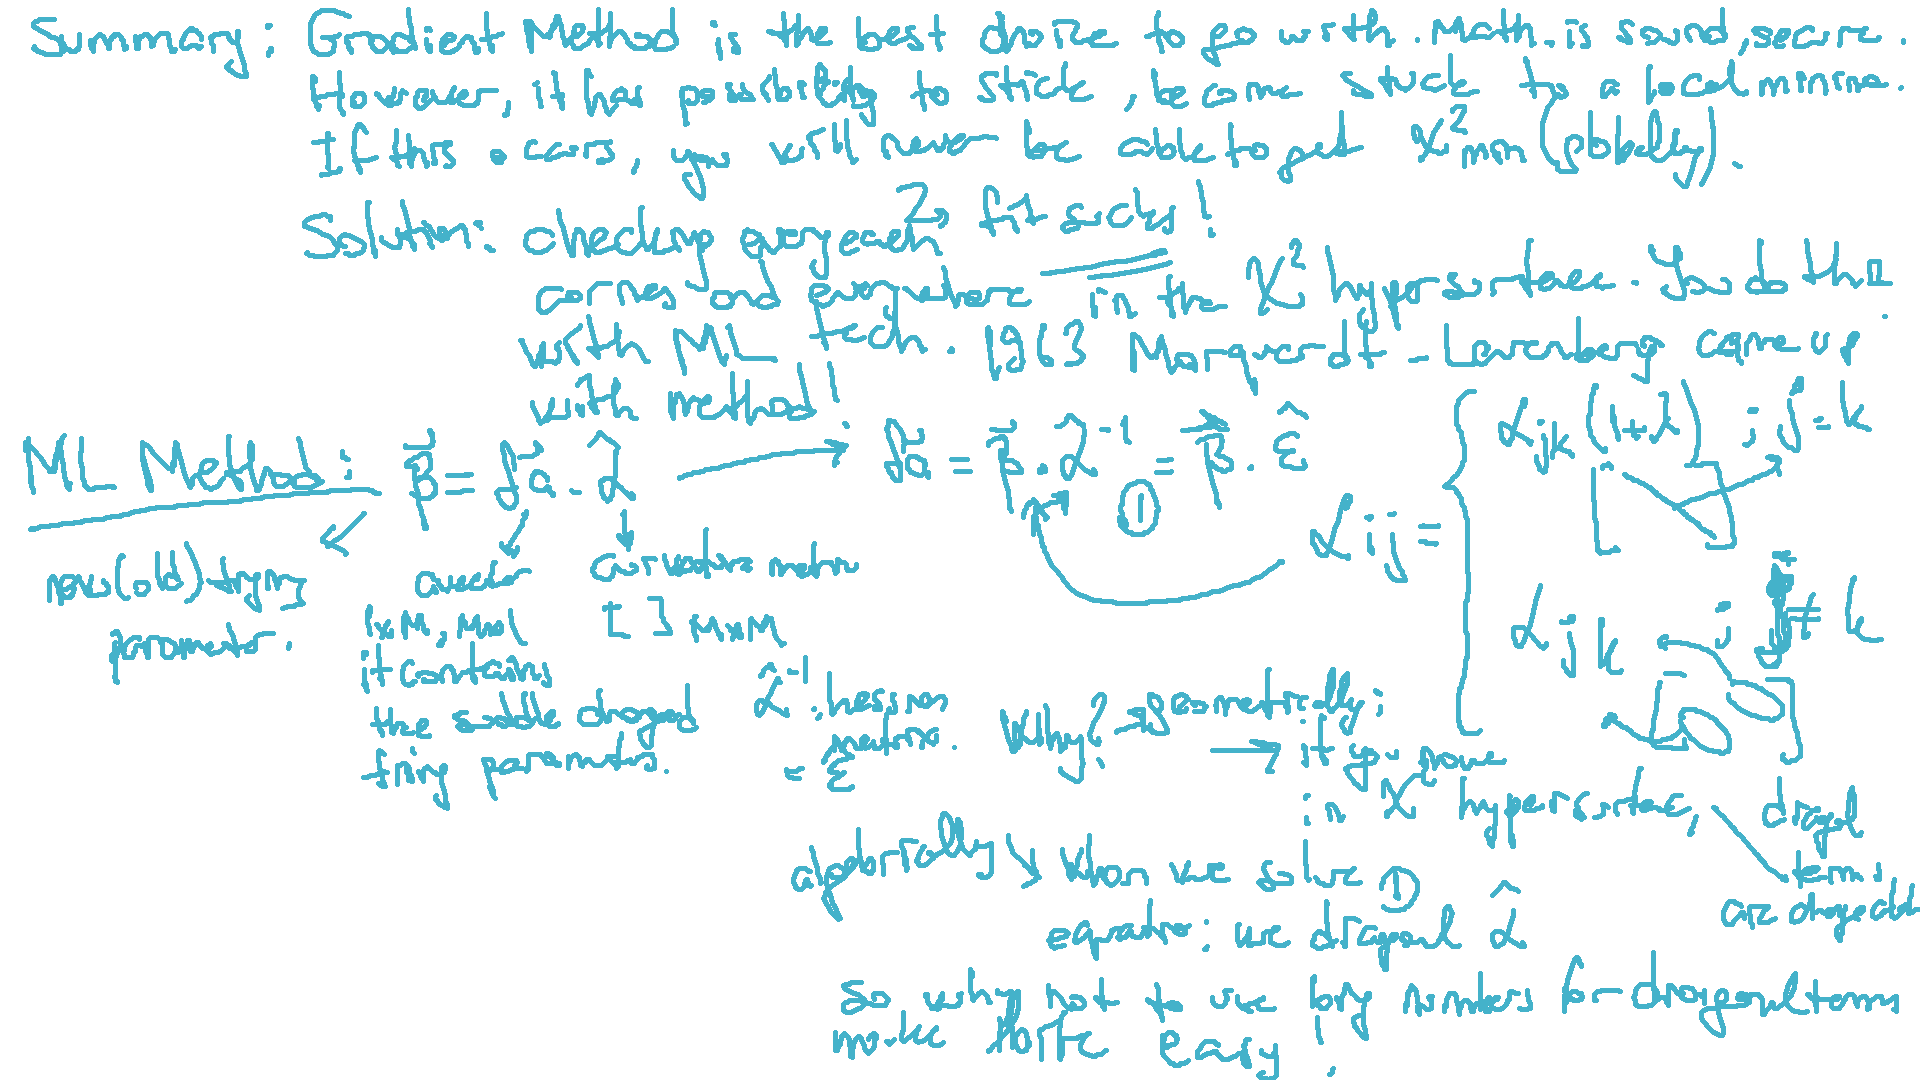 Summary: Gradient Method is the best choice to go with. Math. is sound, secure.
However, it has possibility to stick, become stuck to a local minima.
If this occurs, you will never be able to get χ²min (globally).
Solution: checking every each
↳ fit sucks!
corners and everywhere in the χ² hypersurface. You do this
with ML tech. 1963 Marquardt - Levenberg came up
with method!
ML Method: β⃗ = δa⃗ . α̂ → δa⃗ = β⃗ . α̂⁻¹ = β⃗ . ε̂
①
αij = { αjk (1+λ) ; j = k
αjk ; j ≠ k
new (old) trying
parameter.
a vector
1xM, Mx1
it contains
the changed
parameters.
curvature matrix
[ ] MxM
α̂⁻¹: hessian
matrix.
= ε̂
Why? → geometrically:
→ if you move
in χ² hypersurface,
diagol
terms
are
algebrically ↘ When we solve ①
equation: we diagonal α̂
So why not to use big numbers for diagonal terms
make there easy!